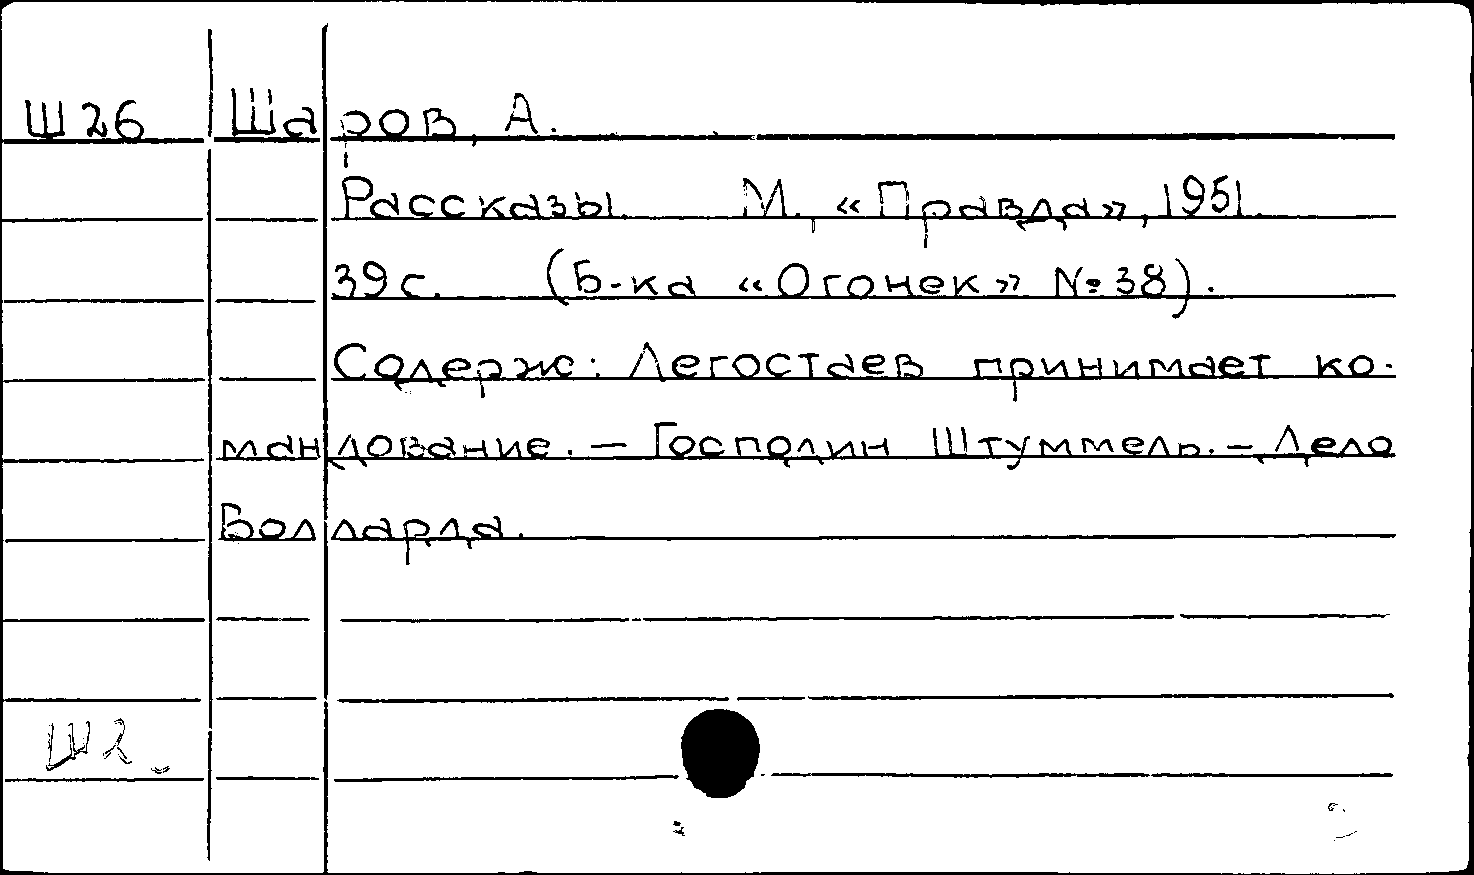 Ш26 Шаров, А.
Рассказы. М., «Правда», 1951.
39 с. (Б-ка «Огонек» № 38).
Содерж: Легостаев принимает ко-
мандование. — Господин Штуммель. — Дело
Болларда.
Ш2